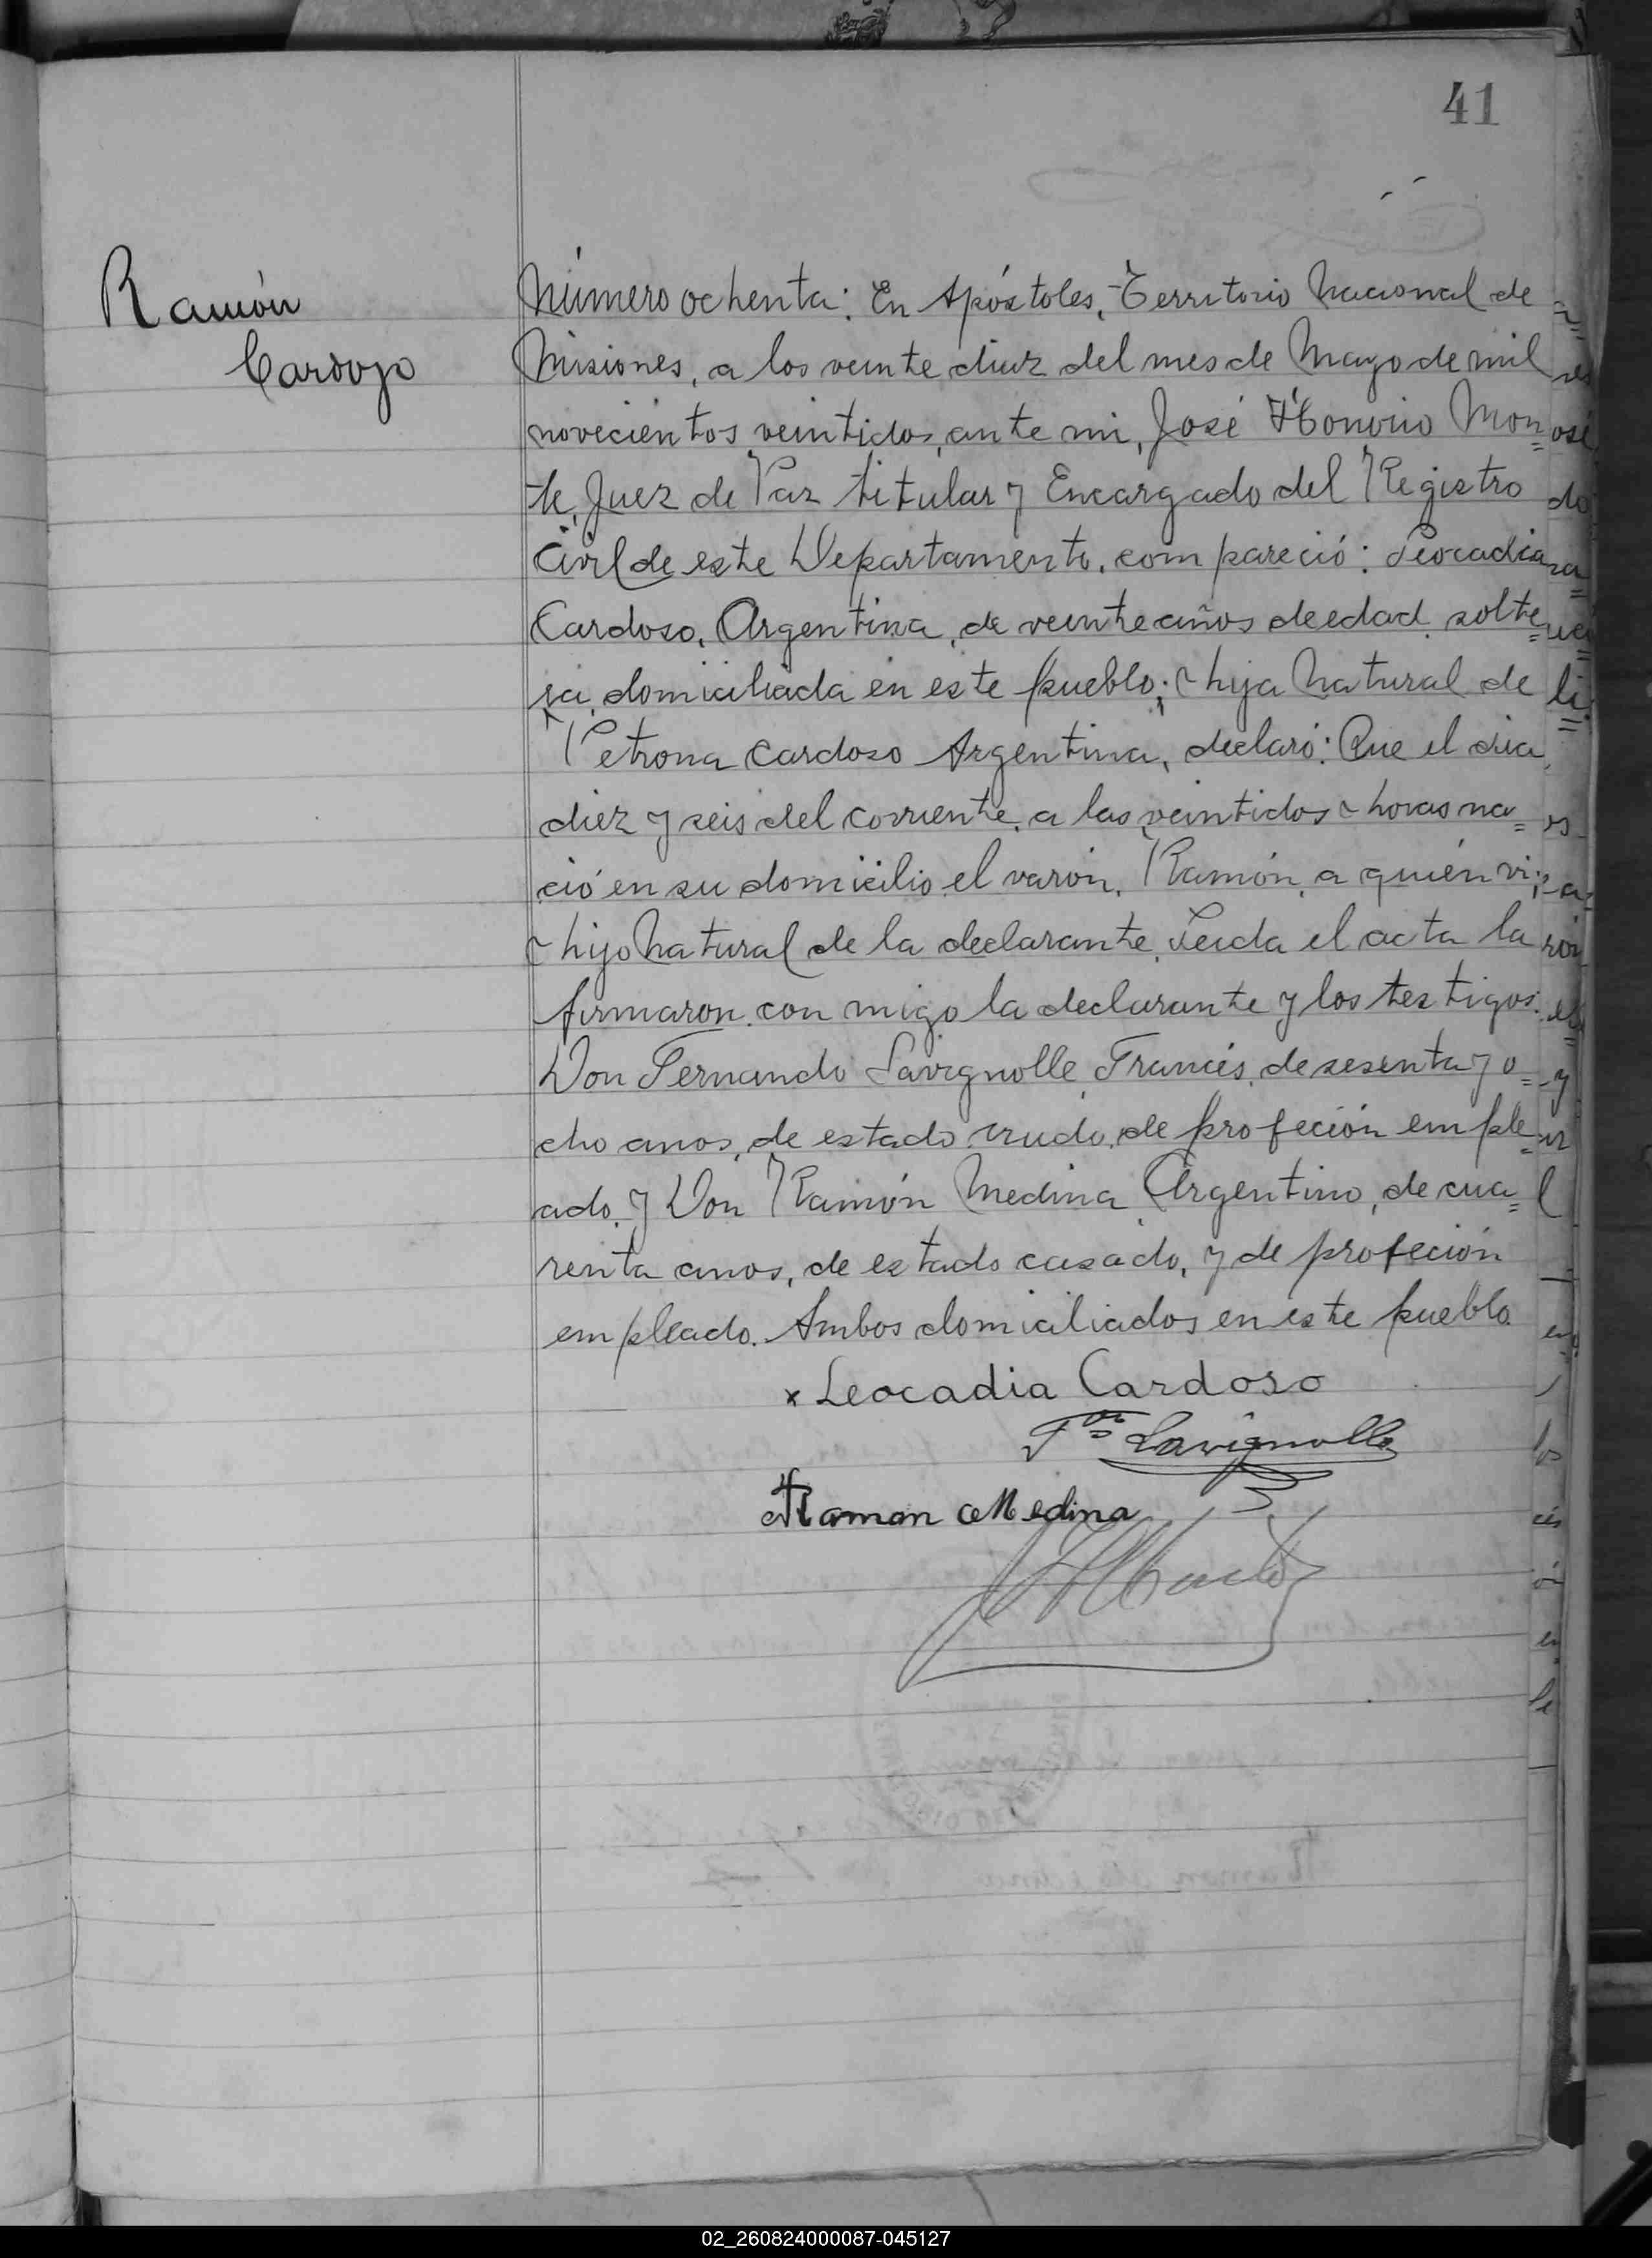 41
Ramón
Cardozo
Número ochenta: En Apóstoles, Territorio Nacional de
Misiones, a los veinte días del mes de Mayo de mil
novecientos veintidos, ante mi, José Honorio Mon=
te, Juez de Paz titular y Encargado del Registro
Civil de este Departamento, compareció: Leocadia
Cardoso, Argentina, de veinte años de edad, solte=
ra, domiciliada en este pueblo; hija Natural de
Petrona Cardoso Argentina, declaró: Que el dia
diez y seis del corriente, a las veintidos horas na=
ció en su domicilio el varón, Ramón, a quién vi;
hijo Natural de la declarante. Leida el acta la
firmaron con migo la declarante y los testigos:
Don Fernando Lavignolle, Francés, de sesenta y o=
cho anos, de estado viudo, de profeción emple=
ado. y Don Ramón Medina, Argentino, de cua=
renta anos, de estado casado, y de profeción
empleado. Ambos domiciliados en este pueblo.
x Leocadia Cardoso
Fdo Lavignolle
Ramon Medina
02_260824000087-045127